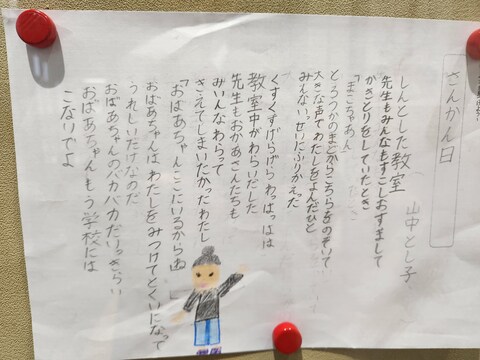 さんかん日
山中とし子
しんとした教室
先生もみんなもすこしおすまして
かきとりをしていたとき
「まこちゃあん」
とろうかのまどからこちらをのぞいて
大きな声でわたしをよんだひと
みんないっせいにふりかえった
くすくすげらげらわっはっはは
教室中がわらいだした
先生もおかあさんたちも
みいんなわらって
きえてしまいたかったわたし
「おばあちゃんここにいるからね」
おばあちゃんはわたしをみつけてとくいになって
うれしいだけなのだ
おばあちゃんのバカバカだいっきらい
おばあちゃんもう学校には
こないでよ